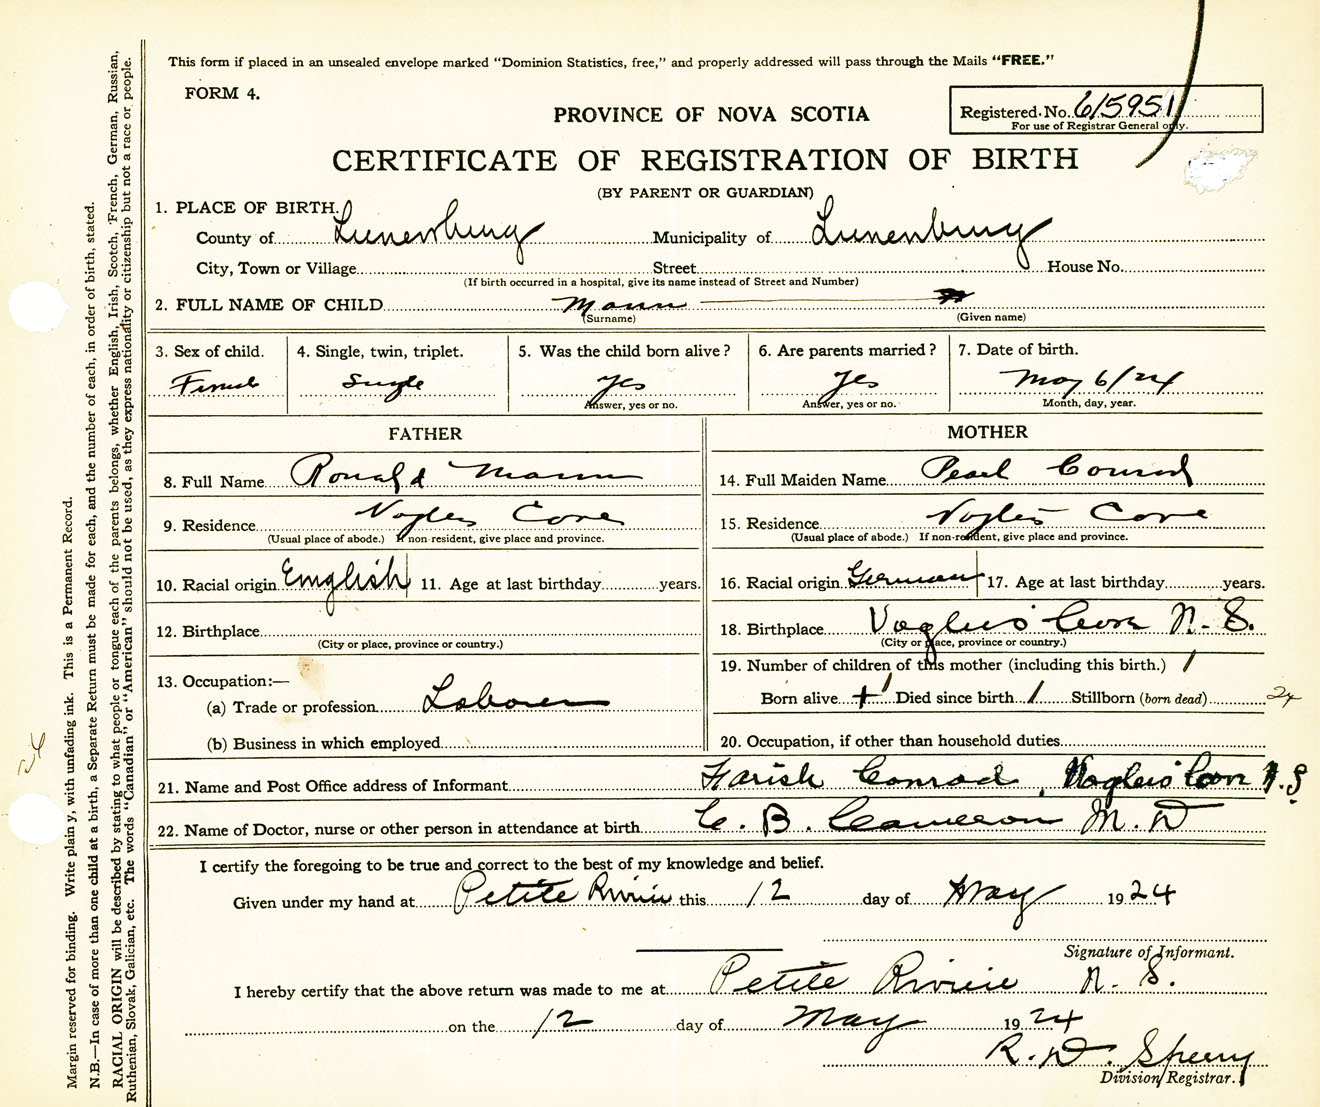 This form if placed in an unsealed envelope marked "Dominion Statistics, free," and properly addressed will pass through the Mails "FREE."
FORM 4.
PROVINCE OF NOVA SCOTIA
Registered No. 615951
For use of Registrar General only.
CERTIFICATE OF REGISTRATION OF BIRTH
(BY PARENT OR GUARDIAN)
1. PLACE OF BIRTH.
County of Lunenburg Municipality of Lunenburg
City, Town or Village Street House No.
(If birth occurred in a hospital, give its name instead of Street and Number)
2. FULL NAME OF CHILD Mann
(Surname) (Given name)
3. Sex of child. 4. Single, twin, triplet. 5. Was the child born alive? 6. Are parents married? 7. Date of birth.
Female Single Yes Yes May 6/24
Answer, yes or no. Answer, yes or no. Month, day, year.
FATHER MOTHER
8. Full Name Ronald Mann 14. Full Maiden Name Pearl Conrad
9. Residence Voglers Cove 15. Residence Voglers Cove
(Usual place of abode.) If non-resident, give place and province. (Usual place of abode.) If non-resident, give place and province.
10. Racial origin English 11. Age at last birthday years. 16. Racial origin German 17. Age at last birthday years.
12. Birthplace 18. Birthplace Voglers Cove N. S.
(City or place, province or country.) (City or place, province or country.)
19. Number of children of this mother (including this birth.) 1
13. Occupation:—
(a) Trade or profession Laborer Born alive 1 Died since birth 1 Stillborn (born dead) 24
(b) Business in which employed 20. Occupation, if other than household duties
21. Name and Post Office address of Informant Conrad, Voglers Cove N.S.
22. Name of Doctor, nurse or other person in attendance at birth C. B. Cameron M.D
I certify the foregoing to be true and correct to the best of my knowledge and belief.
Given under my hand at Petite Riviere this 12 day of May 1924
Signature of Informant.
I hereby certify that the above return was made to me at Petite Riviere N. S.
on the 12 day of May 1924
R. D. Sperry
Division Registrar.
Margin reserved for binding. Write plainly, with unfading ink. This is a Permanent Record.
N.B.—In case of more than one child at a birth, a Separate Return must be made for each, and the number of each, in order of birth, stated.
RACIAL ORIGIN will be described by stating to what people or tongue each of the parents belongs, whether English, Irish, Scotch, French, German, Russian,
Ruthenian, Slovak, Galician, etc. The words "Canadian" or "American" should not be used, as they express nationality or citizenship but not a race or people.